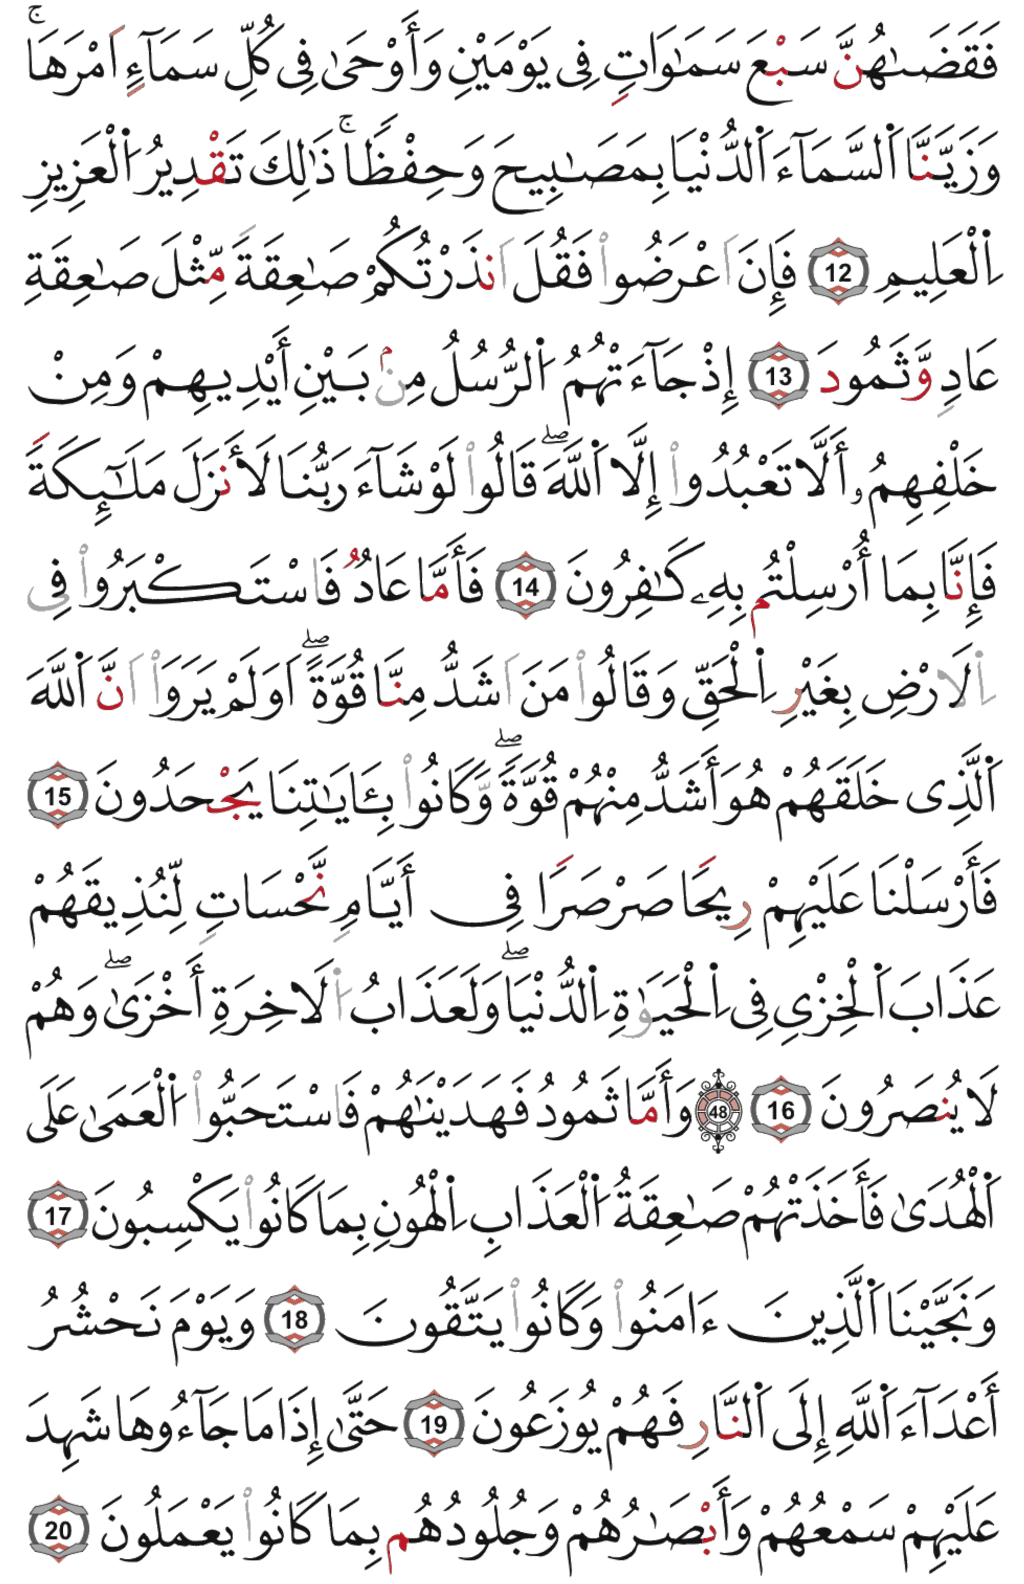 فَقَضَىٰهُنَّ سَبْعَ سَمَٰوَاتٍ فِى يَوْمَيْنِ وَأَوْحَىٰ فِى كُلِّ سَمَآءٍ اَمْرَهَاۚ
وَزَيَّنَّا اَ۬لسَّمَآءَ اَ۬لدُّنْيَا بِمَصَٰبِيحَ وَحِفْظٗاۚ ذَٰلِكَ تَقْدِيرُ اُ۬لْعَزِيزِ
اِ۬لْعَلِيمِ 12 فَإِنَ اَعْرَضُواْ فَقُلَ اَنذَرْتُكُمْ صَٰعِقَةٗ مِّثْلَ صَٰعِقَةِ
عَادٖ وَّثَمُودَ 13 إِذْ جَآءَتْهُمُ اُ۬لرُّسُلُ مِنۢ بَيْنِ أَيْدِيهِمْ وَمِنْ
خَلْفِهِمُۥٓ أَلَّا تَعْبُدُواْ إِلَّا اَ۬للَّهَۖ قَالُواْ لَوْ شَآءَ رَبُّنَا لَأَنزَلَ مَلَٰٓئِكَةٗ
فَإِنَّا بِمَا أُرْسِلْتُم بِهِۦ كَٰفِرُونَ 14 فَأَمَّا عَادٞ فَاسْتَكْبَرُواْ فِى
اِ۬لَارْضِ بِغَيْرِ اِ۬لْحَقِّ وَقَالُواْ مَنَ اَشَدُّ مِنَّا قُوَّةًۖ اَوَلَمْ يَرَوَاْ اَنَّ اَ۬للَّهَ
اَ۬لَّذِى خَلَقَهُمْ هُوَ أَشَدُّ مِنْهُمْ قُوَّةٗۖ وَّكَانُواْ بِـَٔايَٰتِنَا يَجْحَدُونَ 15
فَأَرْسَلْنَا عَلَيْهِمْ رِيحٗا صَرْصَرٗا فِى أَيَّامٖ نَّحْسَاتٖ لِّنُذِيقَهُمْ
عَذَابَ اَ۬لْخِزْيِ فِى اِ۬لْحَيَوٰةِ اِ۬لدُّنْيَاۖ وَلَعَذَابُ اُ۬لَاخِرَةِ أَخْزَىٰۖ وَهُمْ
لَا يُنصَرُونَ 16 48 وَأَمَّا ثَمُودُ فَهَدَيْنَٰهُمْ فَاسْتَحَبُّواْ اُ۬لْعَمَىٰ عَلَى
اَ۬لْهُدَىٰ فَأَخَذَتْهُمْ صَٰعِقَةُ اُ۬لْعَذَابِ اِ۬لْهُونِ بِمَا كَانُواْ يَكْسِبُونَ 17
وَنَجَّيْنَا اَ۬لَّذِينَ ءَامَنُواْ وَكَانُواْ يَتَّقُونَ 18 وَيَوْمَ نَحْشُرُ
أَعْدَآءَ اَ۬للَّهِ إِلَى اَ۬لنَّارِ فَهُمْ يُوزَعُونَ 19 حَتَّىٰ إِذَا مَا جَآءُوهَا شَهِدَ
عَلَيْهِمْ سَمْعُهُمْ وَأَبْصَٰرُهُمْ وَجُلُودُهُم بِمَا كَانُواْ يَعْمَلُونَ 20